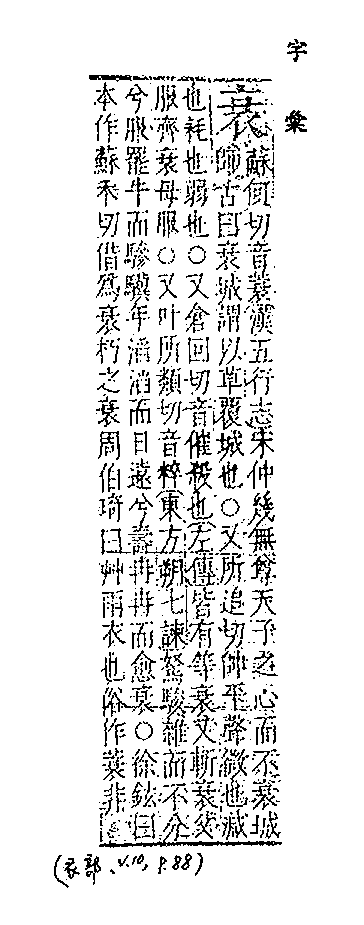 字彙
衰 蘇何切音蓑漢五行志宋仲幾無尊天子之心而不衰城
師古曰衰城謂以草覆城也○又所追切帥平聲微也減
也耗也弱也○又倉回切音催殺也左傳皆有等衰又斬衰父
服齊衰母服○又叶所類切音粹東方朔七諫駑駿雜而不分
兮服罷牛而驂驥年滔滔而日遠兮壽冉冉而愈衰○徐鉉曰
本作蘇禾切借為衰朽之衰周伯琦曰艸雨衣也俗作蓑非
(衣部、V.10, P.88)